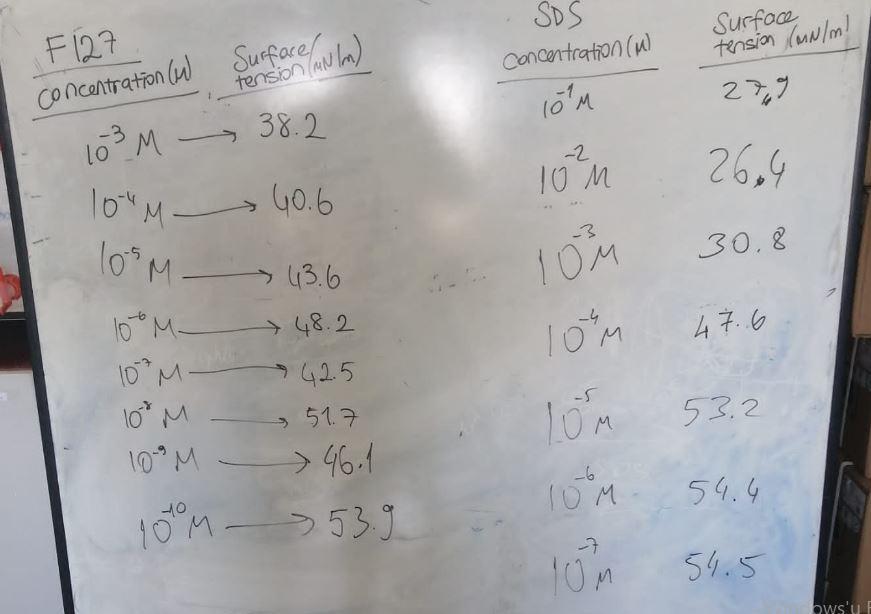 F127
Concentration (M) Surface tension (mN/m)
10⁻³ M → 38.2
10⁻⁴ M → 40.6
10⁻⁵ M → 43.6
10⁻⁶ M → 48.2
10⁻⁷ M → 42.5
10⁻⁸ M → 51.7
10⁻⁹ M → 46.1
10⁻¹⁰ M → 53.9
SDS
Concentration (M) Surface tension (mN/m)
10⁻¹ M 27.9
10⁻² M 26.4
10⁻³ M 30.8
10⁻⁴ M 47.6
10⁻⁵ M 53.2
10⁻⁶ M 54.4
10⁻⁷ M 54.5